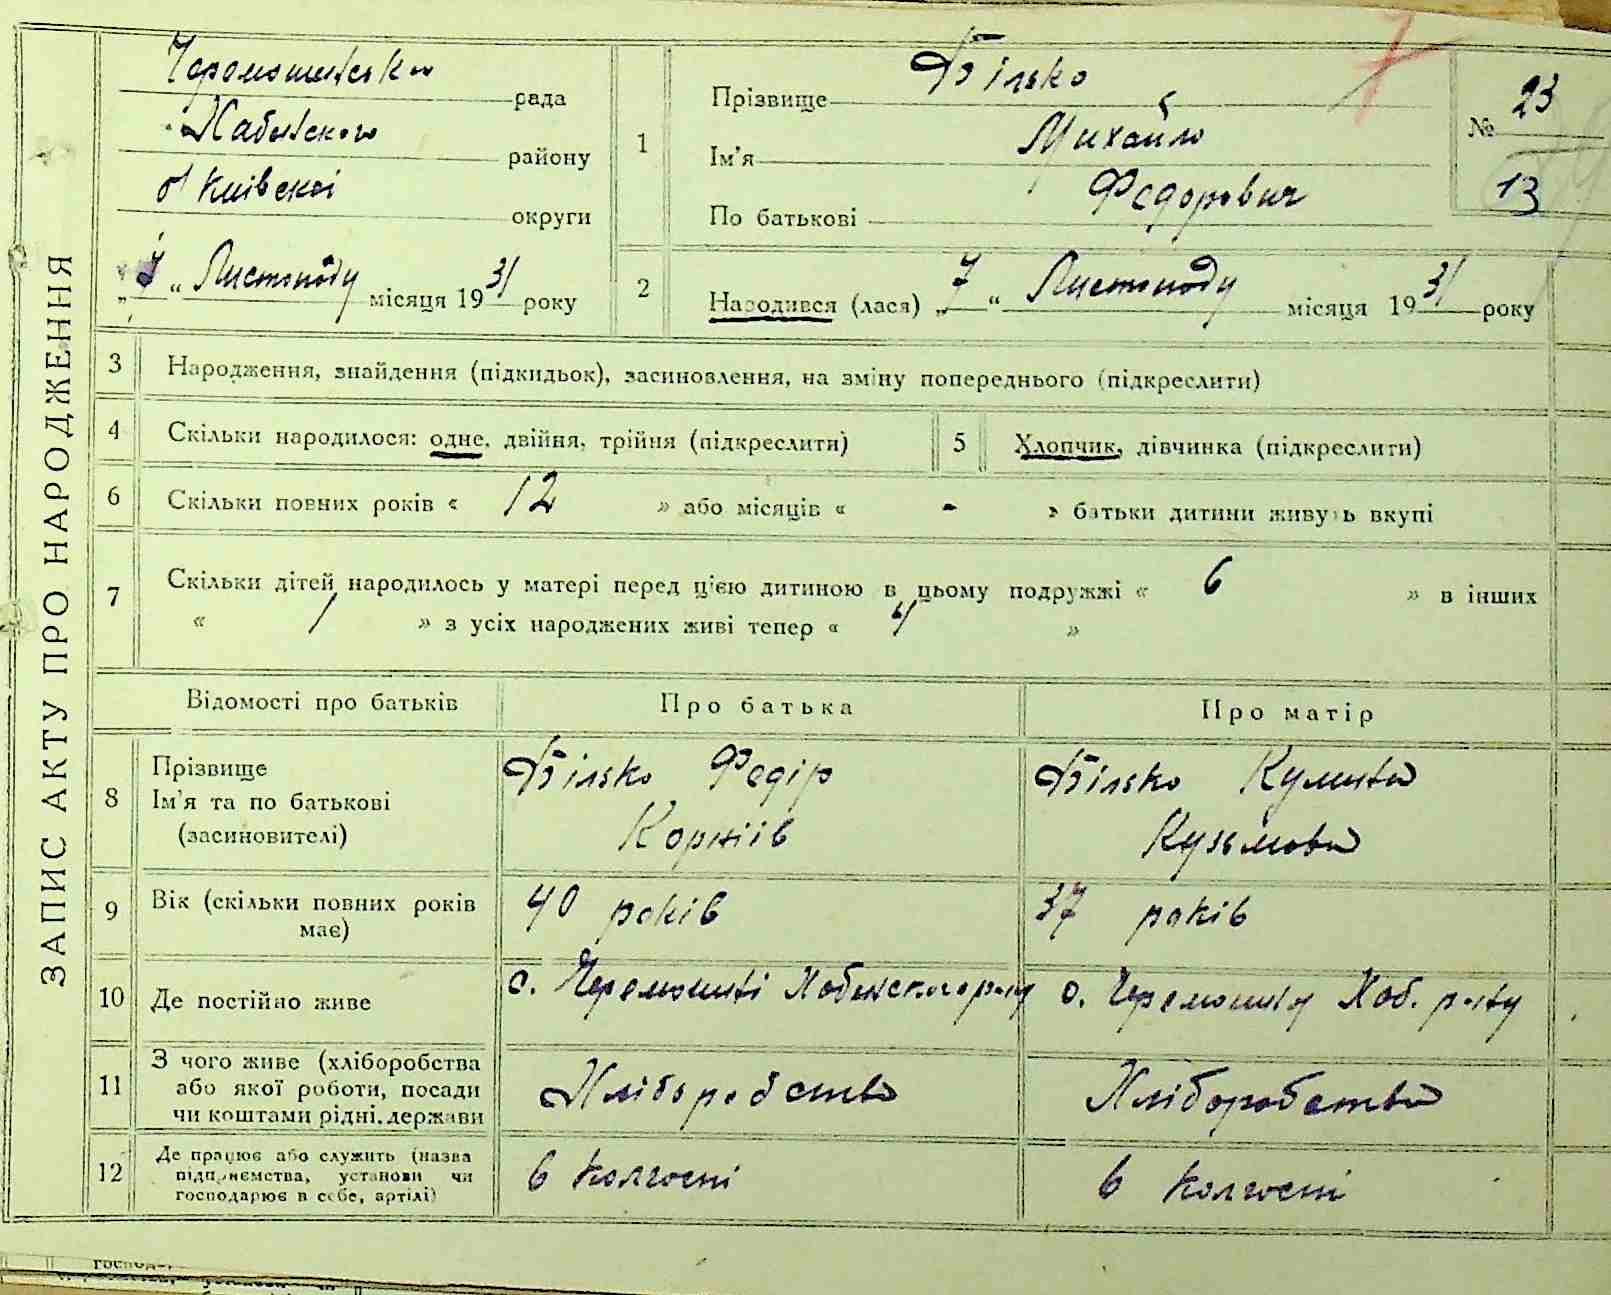 ЗАПИС АКТУ ПРО НАРОДЖЕННЯ
Черемошнська рада
Хабенского району
Київскої округи
„7“ Листопаду місяця 1931 року
1
Прізвище Білько
Ім'я Михайло
По батькові Федорович
№ 23
13
2
Народився (лася) „7“ Листопаду місяця 1931 року
3 Народження, знайдення (підкидьок), засиновлення, на зміну попереднього (підкреслити)
4 Скільки народилося: одне, двійня, трійня (підкреслити)
5 Хлопчик, дівчинка (підкреслити)
6 Скільки повних років « 12 » або місяців « - » батьки дитини живуть вкупі
7 Скільки дітей народилось у матері перед цією дитиною в цьому подружжі « 6 » в інших
« / » з усіх народжених живі тепер « 4 »
Відомості про батьків
Про батька
Про матір
8 Прізвище
Ім'я та по батькові
(засиновителі)
Білько Федір
Корніїв
Білько Кулина
Кузьмова
9 Вік (скільки повних років
має)
40 років
37 років
10 Де постійно живе
с. Черемошні Хабенского рону
с. Черемошня Хаб. рону
11 З чого живе (хліборобства
або якої роботи, посади
чи коштами рідні, держави
Хліборобства
Хліборобства
12 Де працює або служить (назва
підприємства, установи чи
господарює в себе, артілі)
в колгоспі
в колгоспі